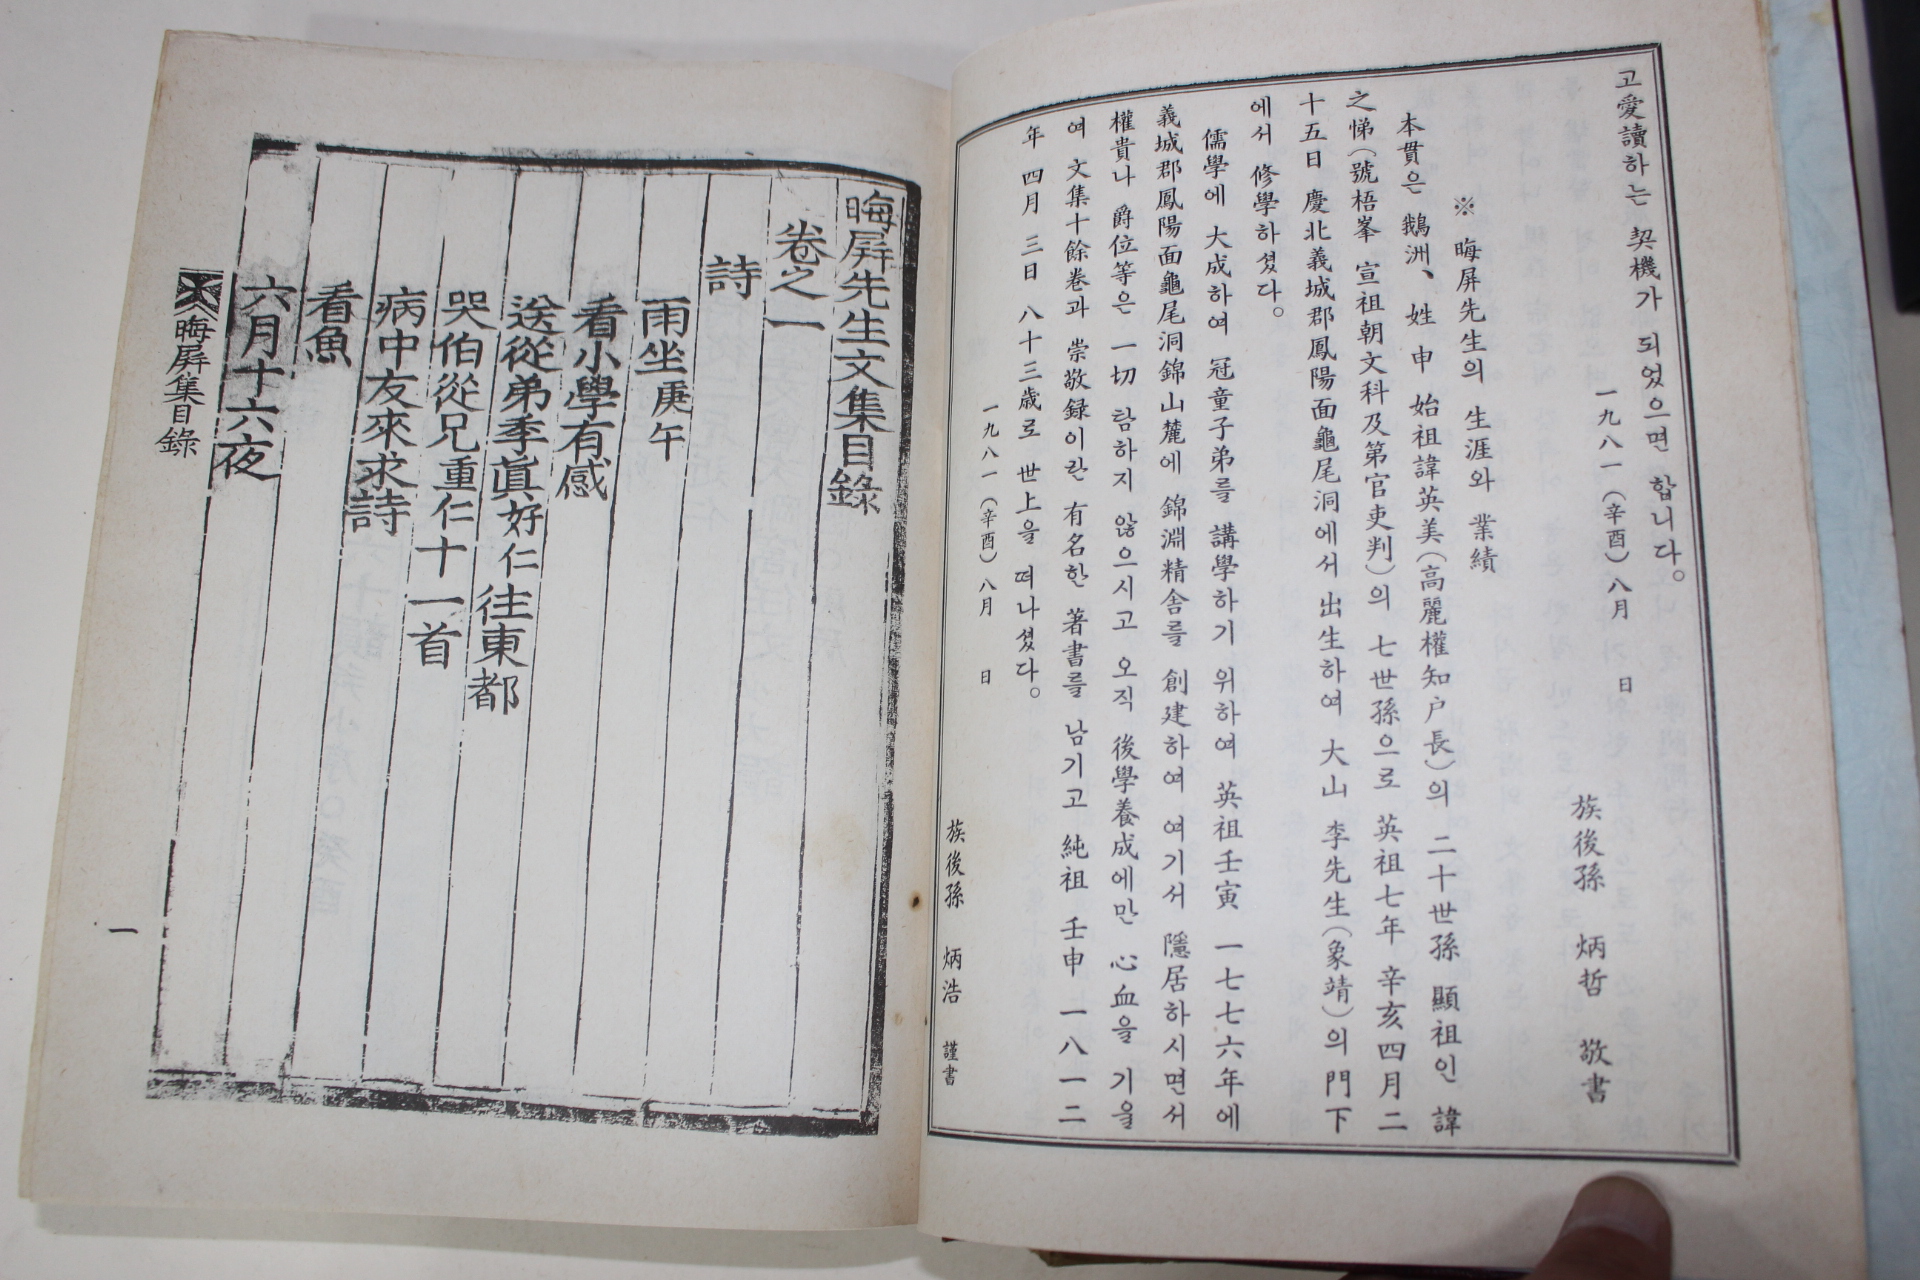 고 愛讀하는 契機가 되었으면 합니다。
一九八一(辛酉)八月 日
族後孫 炳哲 敬書
※ 晦屛先生의 生涯와 業績
本貫은 鵝洲、 姓 申 始祖諱英美(高麗權知户長)의 二十世孫 顯祖인 諱
之悌(號梧峯 宣祖朝文科及第官吏判)의 七世孫으로 英祖七年 辛亥四月二
十五日 慶北義城郡鳳陽面龜尾洞에서 出生하여 大山 李先生(象靖)의 門下
에서 修學하셨다。
儒學에 大成하여 冠童子弟를 講學하기 위하여 英祖壬寅 一七七六年에
義城郡鳳陽面龜尾洞錦山麓에 錦淵精舍를 創建하여 여기서 隱居하시면서
權貴나 爵位等은 一切 탐하지 않으시고 오직 後學養成에만 心血을 기울
여 文集十餘卷과 崇敬録이란 有名한 著書를 남기고 純祖 壬申 一八一二
年 四月 三日 八十三歲로 世上을 떠나셨다。
一九八一(辛酉)八月 日
族後孫 炳浩 謹書
晦屛先生文集目錄
卷之一
詩
雨坐庚午
看小學有感
送從弟季眞好仁往東都
哭伯從兄重仁十一首
病中友來求詩
看魚
六月十六夜
晦屛集目錄
一